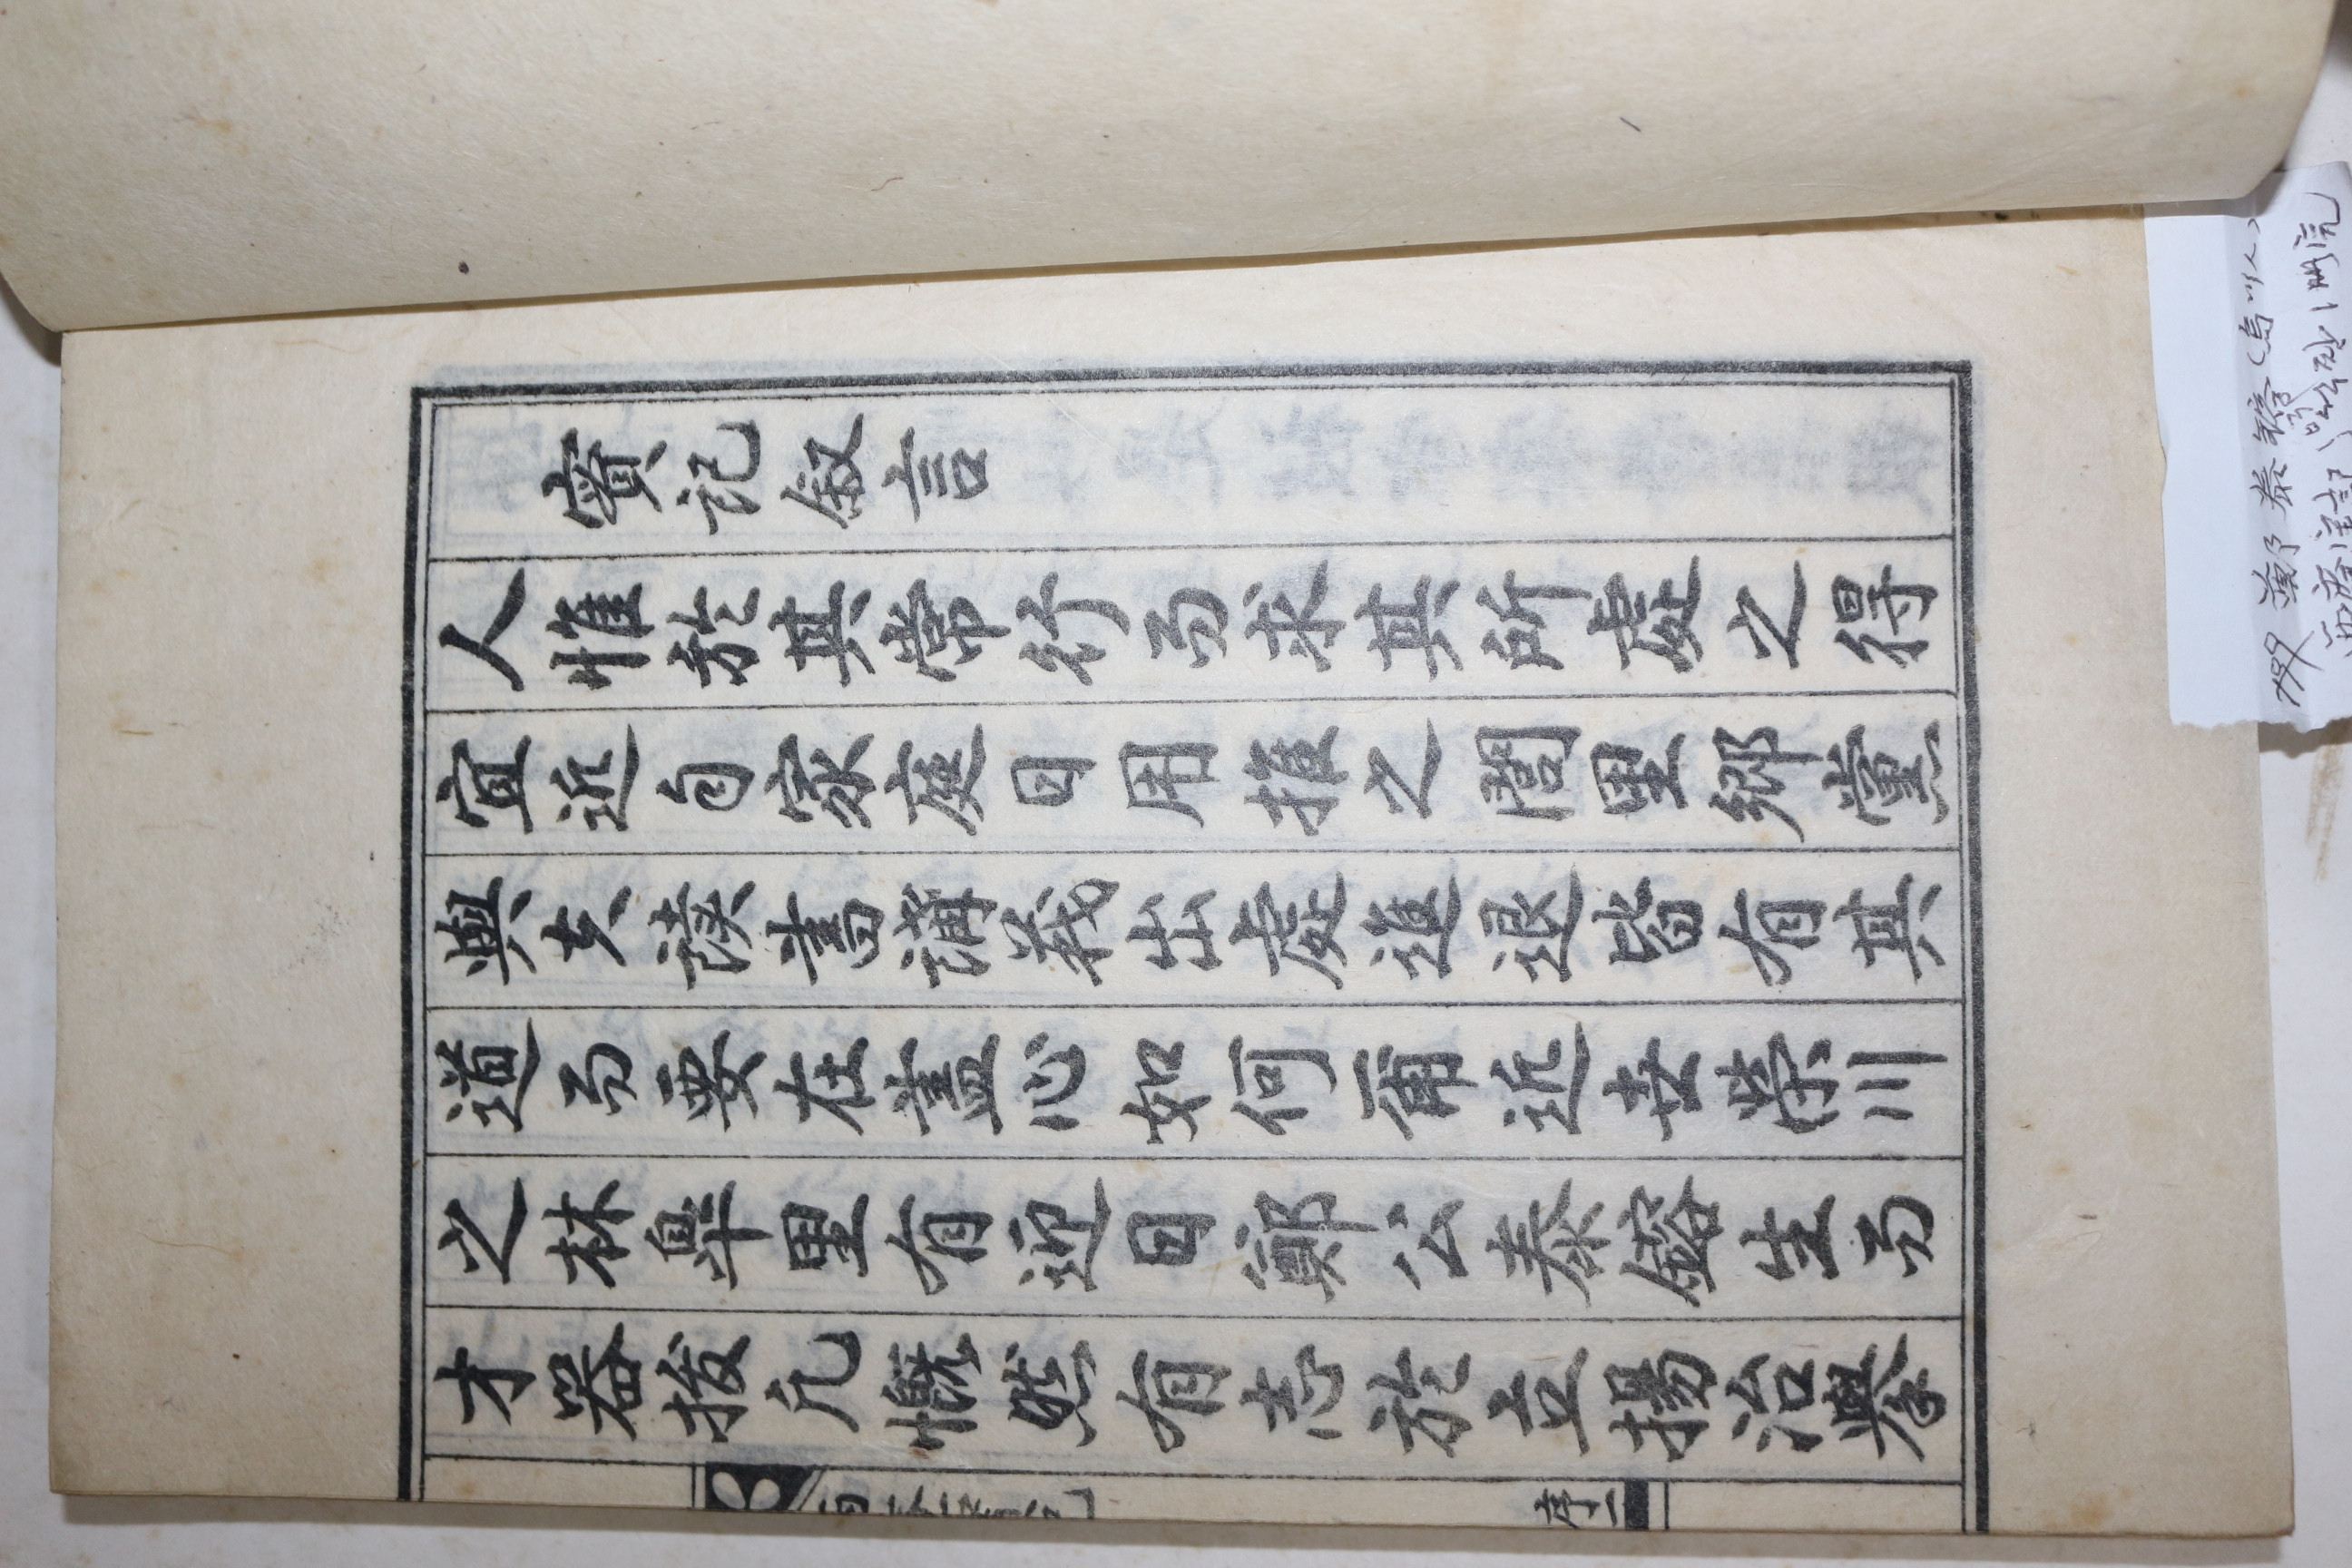 實記叙言
人惟於其常行而求其所處之得
宜近自家庭日用推之閭里鄉黨
與夫讀書講義出處進退皆有其
道而要在盖心如何爾近世榮川
之林皐里有迎日鄭公泰鎔生而
才器拔凡慨然有志於立揚治擧
序二
鄭泰鎔